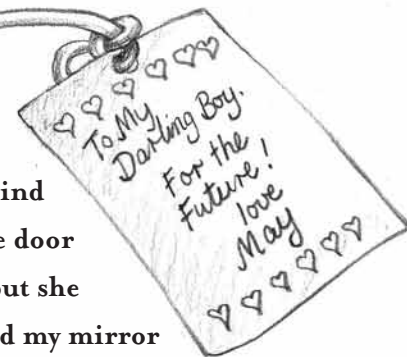 To My
Darling Boy.
For the
Future!
love
May
ind
e door
out she
d my mirror